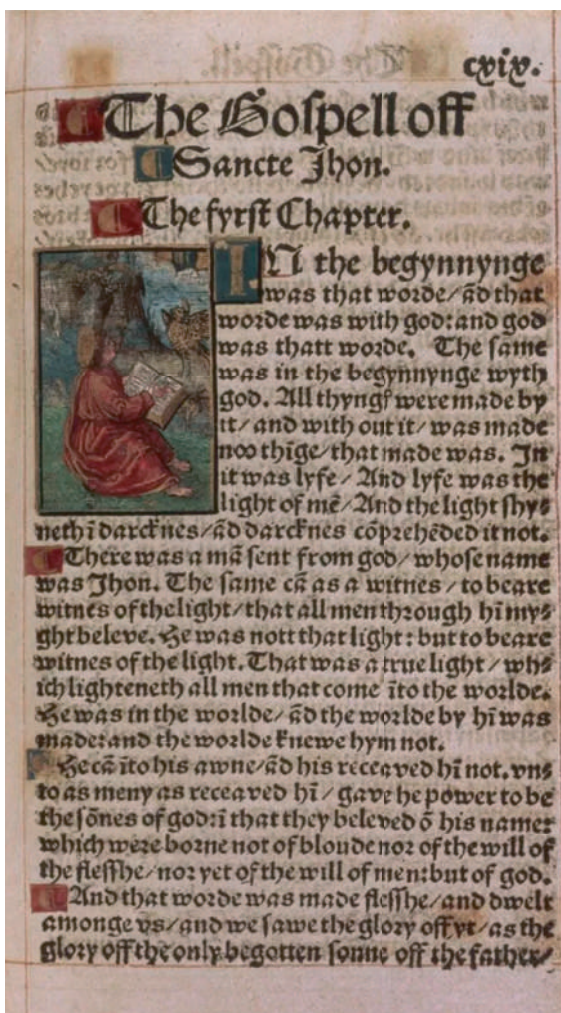 cxix.
The Gospell off
Sancte Jhon.
The fyrst Chapter.
IN the begynnynge
was that worde/ ād that
worde was with god: and god
was thatt worde. The same
was in the begynnynge wyth
god. All thyngꝭ were made by
it/ and with out it/ was made
noo thīge/ that made was. In
it was lyfe/ And lyfe was the
light of mē/ And the light shy⸗
neth ī darcknes/ ād darcknes cōprehēded it not.
There was a mā sent from god/ whose name
was Jhon. The same cā as a witnes/ to beare
witnes of the light/ that all men through hī my⸗
ght beleve. He was nott that light: but to beare
witnes of the light. That was a true light/ wh⸗
ich lighteneth all men that come īto the worlde.
He was in the worlde/ ād the worlde by hī was
made: and the worlde knewe hym not.
He cā īto his awne/ ād his receaved hī not. vn⸗
to as meny as receaved hī/ gave he power to be
the sōnes of god: ī that they beleved ō his name:
which were borne not of bloude nor of the will of
the flesshe/ nor yet of the will of men: but of god.
And that worde was made flesshe/ and dwelt
amonge vs/ and we sawe the glory off yt/ as the
glory off the only begotten sonne off the father/